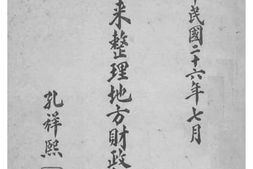 民國二十六年七月
来整理地方財政
孔祥熙